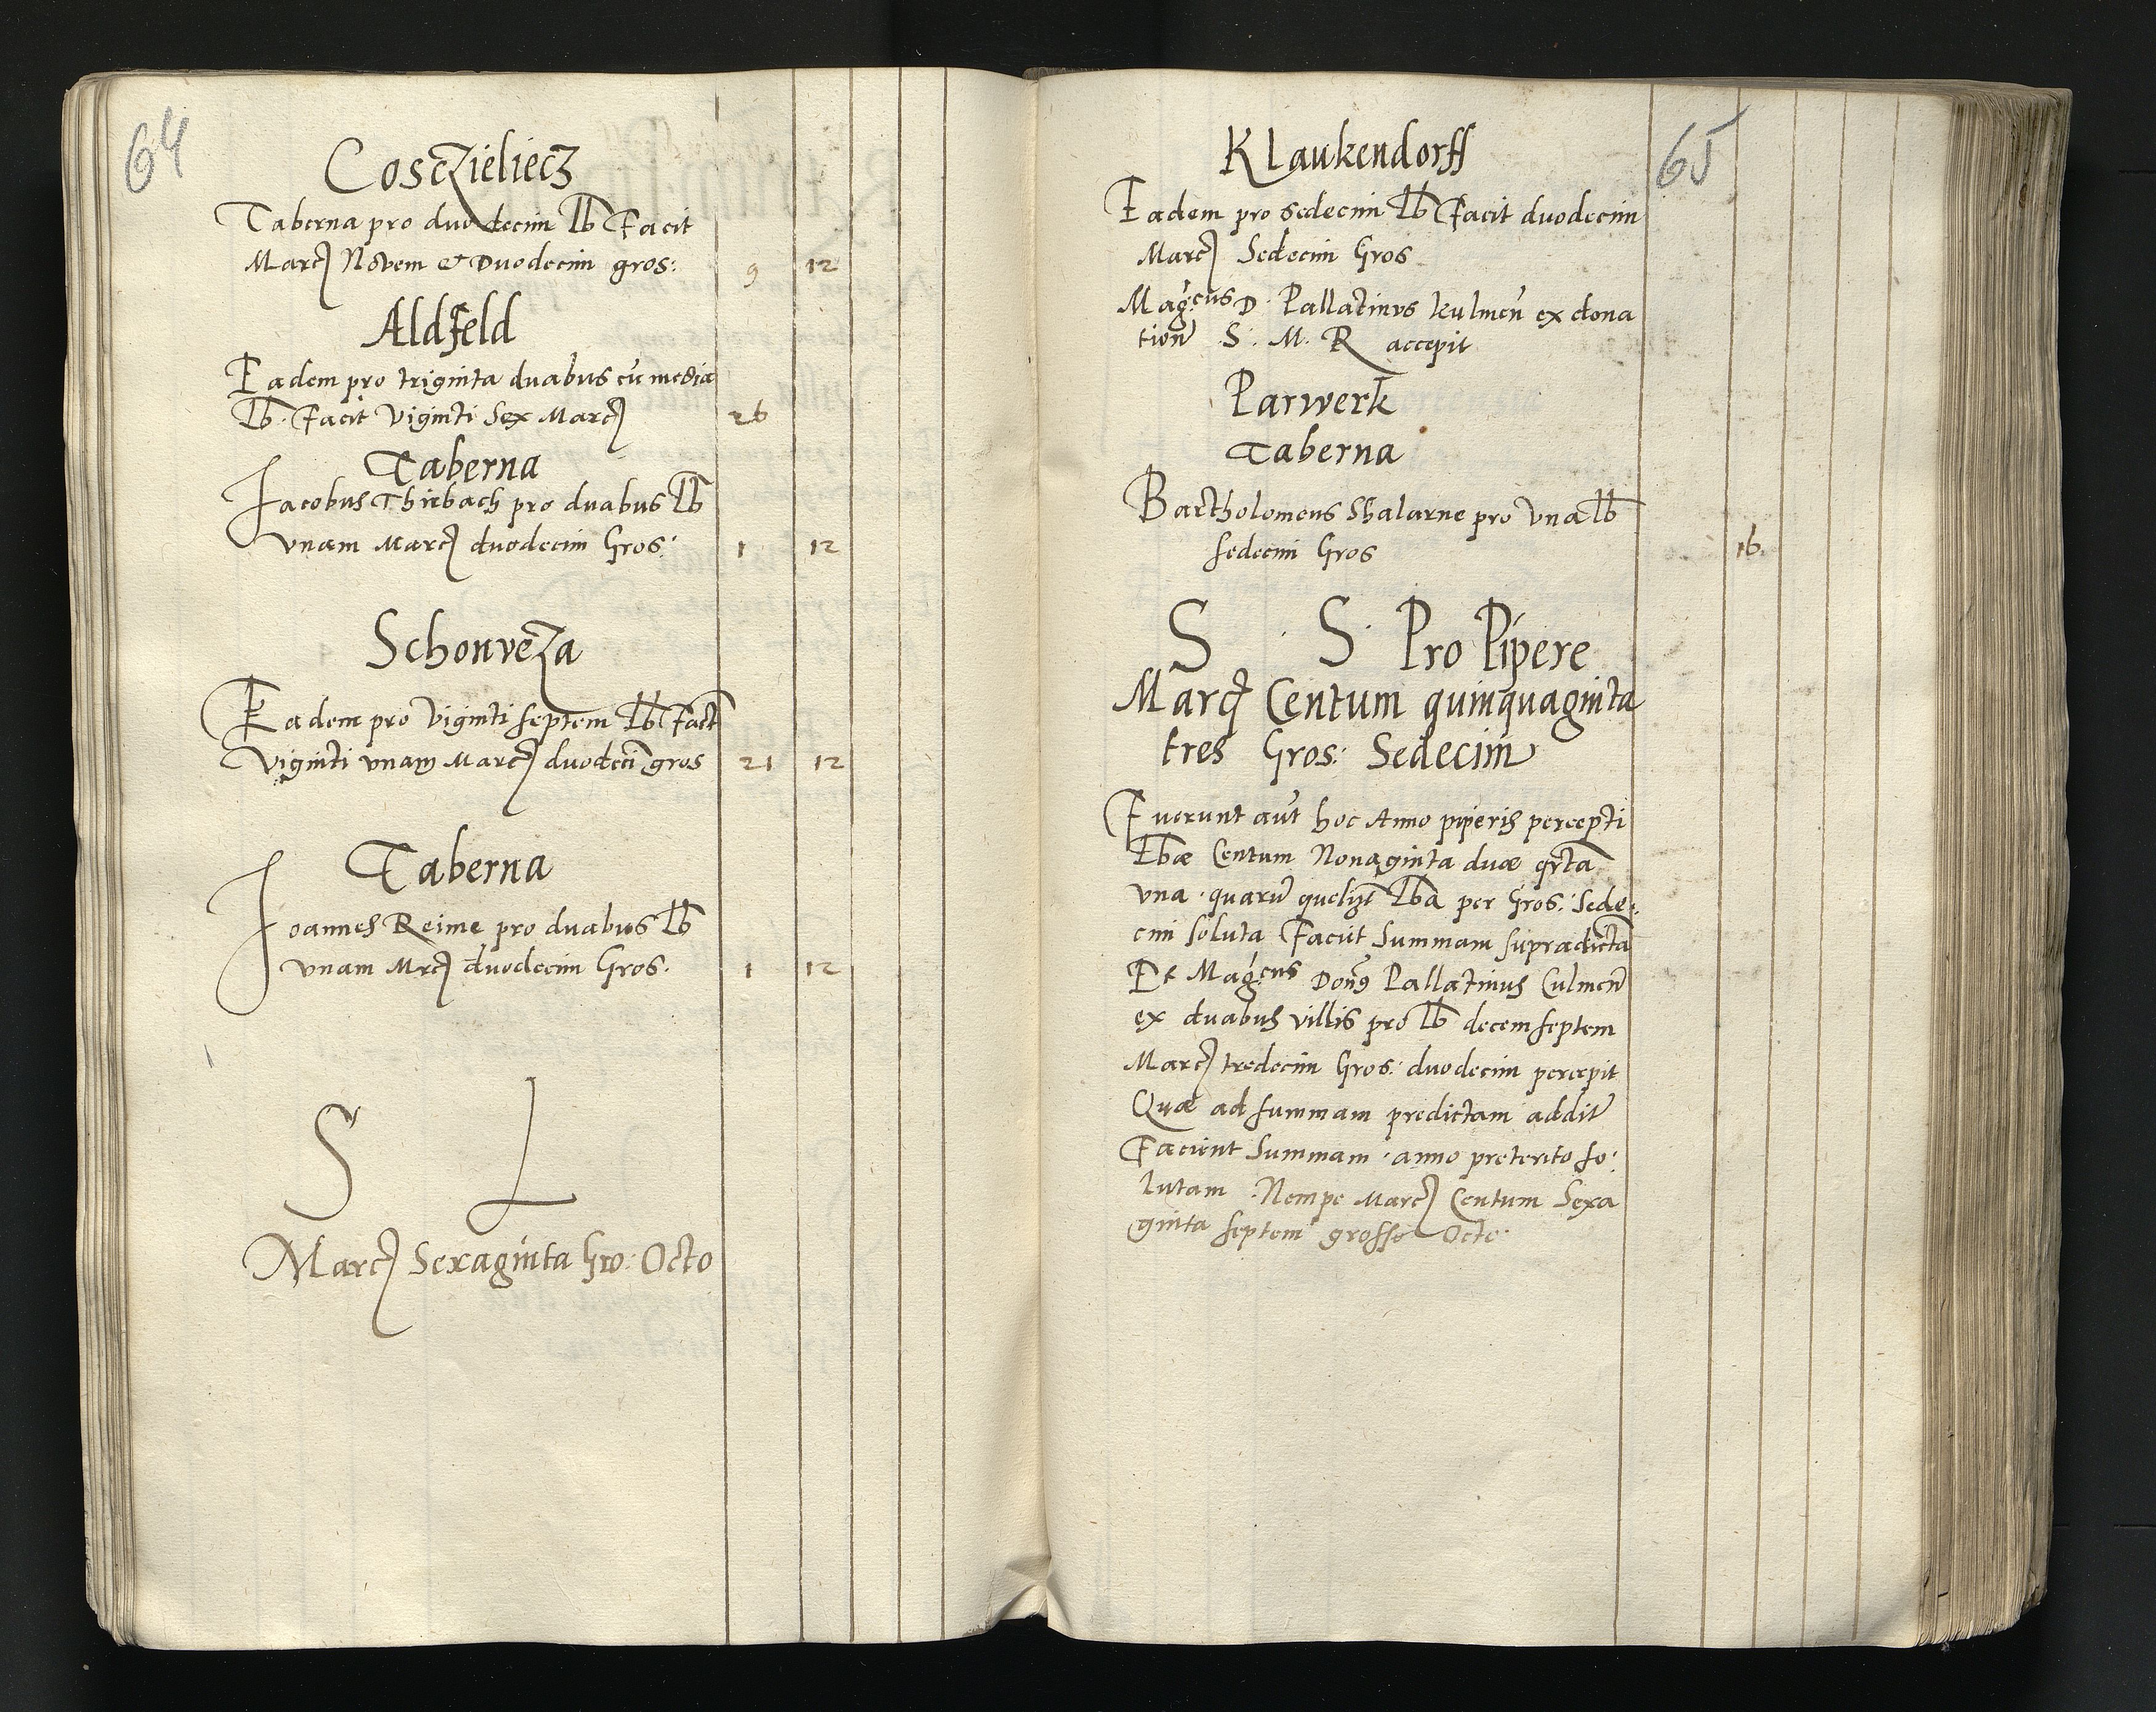 64
Cosczieliecz
Taberna pro duodecim lb Facit
Marc Novem et Duodecim gros: 9 12
Aldfeld
Eadem pro triginta duabus cũ media
lb. Facit Viginti Sex Marc 26
Taberna
Jacobus Thirbach pro duabus lb
vnam Marc duodecim Gros: 1 12
Schonveza
Eadem pro Viginti septem lb Facit
Viginti vnam Marc duodeci gros 21 12
Taberna
Joannes Reime pro duabus lb
vnam Mrc duodecim Gros. 1 12
S L
Marc Sexaginta Gro: Octo
65
Klaukendorff
Eadem pro sedecim lb Facit duodecim
Marc Sedecim Gros
Mag:cus D. Pallatinus kulmen̄ ex dona
tion̄ S. M. R accepit
Parwerk
Taberna
Bartholomeus Shalarne pro Vna lb
sedecim Gros 16.
S S. Pro Pipere
Marc Centum quinquaginta
tres Gros: Sedecim
Fuerunt aut̄ hoc Anno piperis percepti
lbæ Centum Nonaginta duæ qrta
vna. quarū quelizt lba per Gros: Sede:
cim soluta Faciūt Summam supradictā
Et Mag:cus Don9 Pallatinus Culmen̄
ex duabus villis pro lb decem septem
Marc tredecim Gros: duodecim percepit
Quæ ad summam predictam addit̄
Facient Summam. anno preterito so:
lutam. Nempe Marc Centum Sexa
ginta septem grosse Octo.